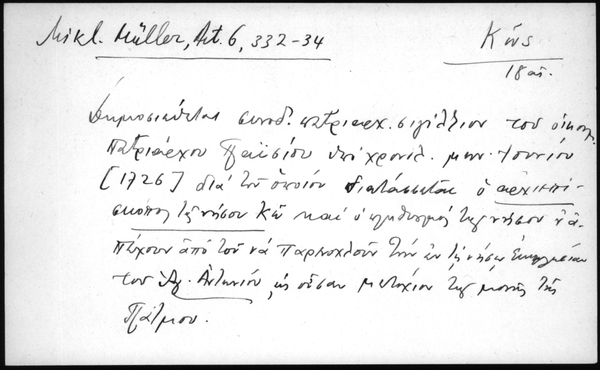 Mikl. Müller, Act. 6, 332-34
Κῶς
18 αἰ.
Δημοσιεύεται συνοδ. πατριαρχ. σιγίλλιον τοῦ οἰκουμ.
πατριάρχου Παϊσίου ὑπὸ χρονολ. μην. Ἰουνίου
[1726] διὰ τοῦ ὁποίου διατάσσεται ὁ ἀρχιεπί-
σκοπος τῆς νήσου Κῶ καὶ ὁ πληθυσμὸς τῆς νήσου ν' ἀ-
πέχουν ἀπὸ τοῦ νὰ παρενοχλοῦν τὴν ἐν τῇ νήσῳ ἐκκλησίαν
τοῦ Ἁγ. Ἀντωνίου, ὡς οὖσαν μετόχιον τῆς μονῆς τῆς
Πάτμου.